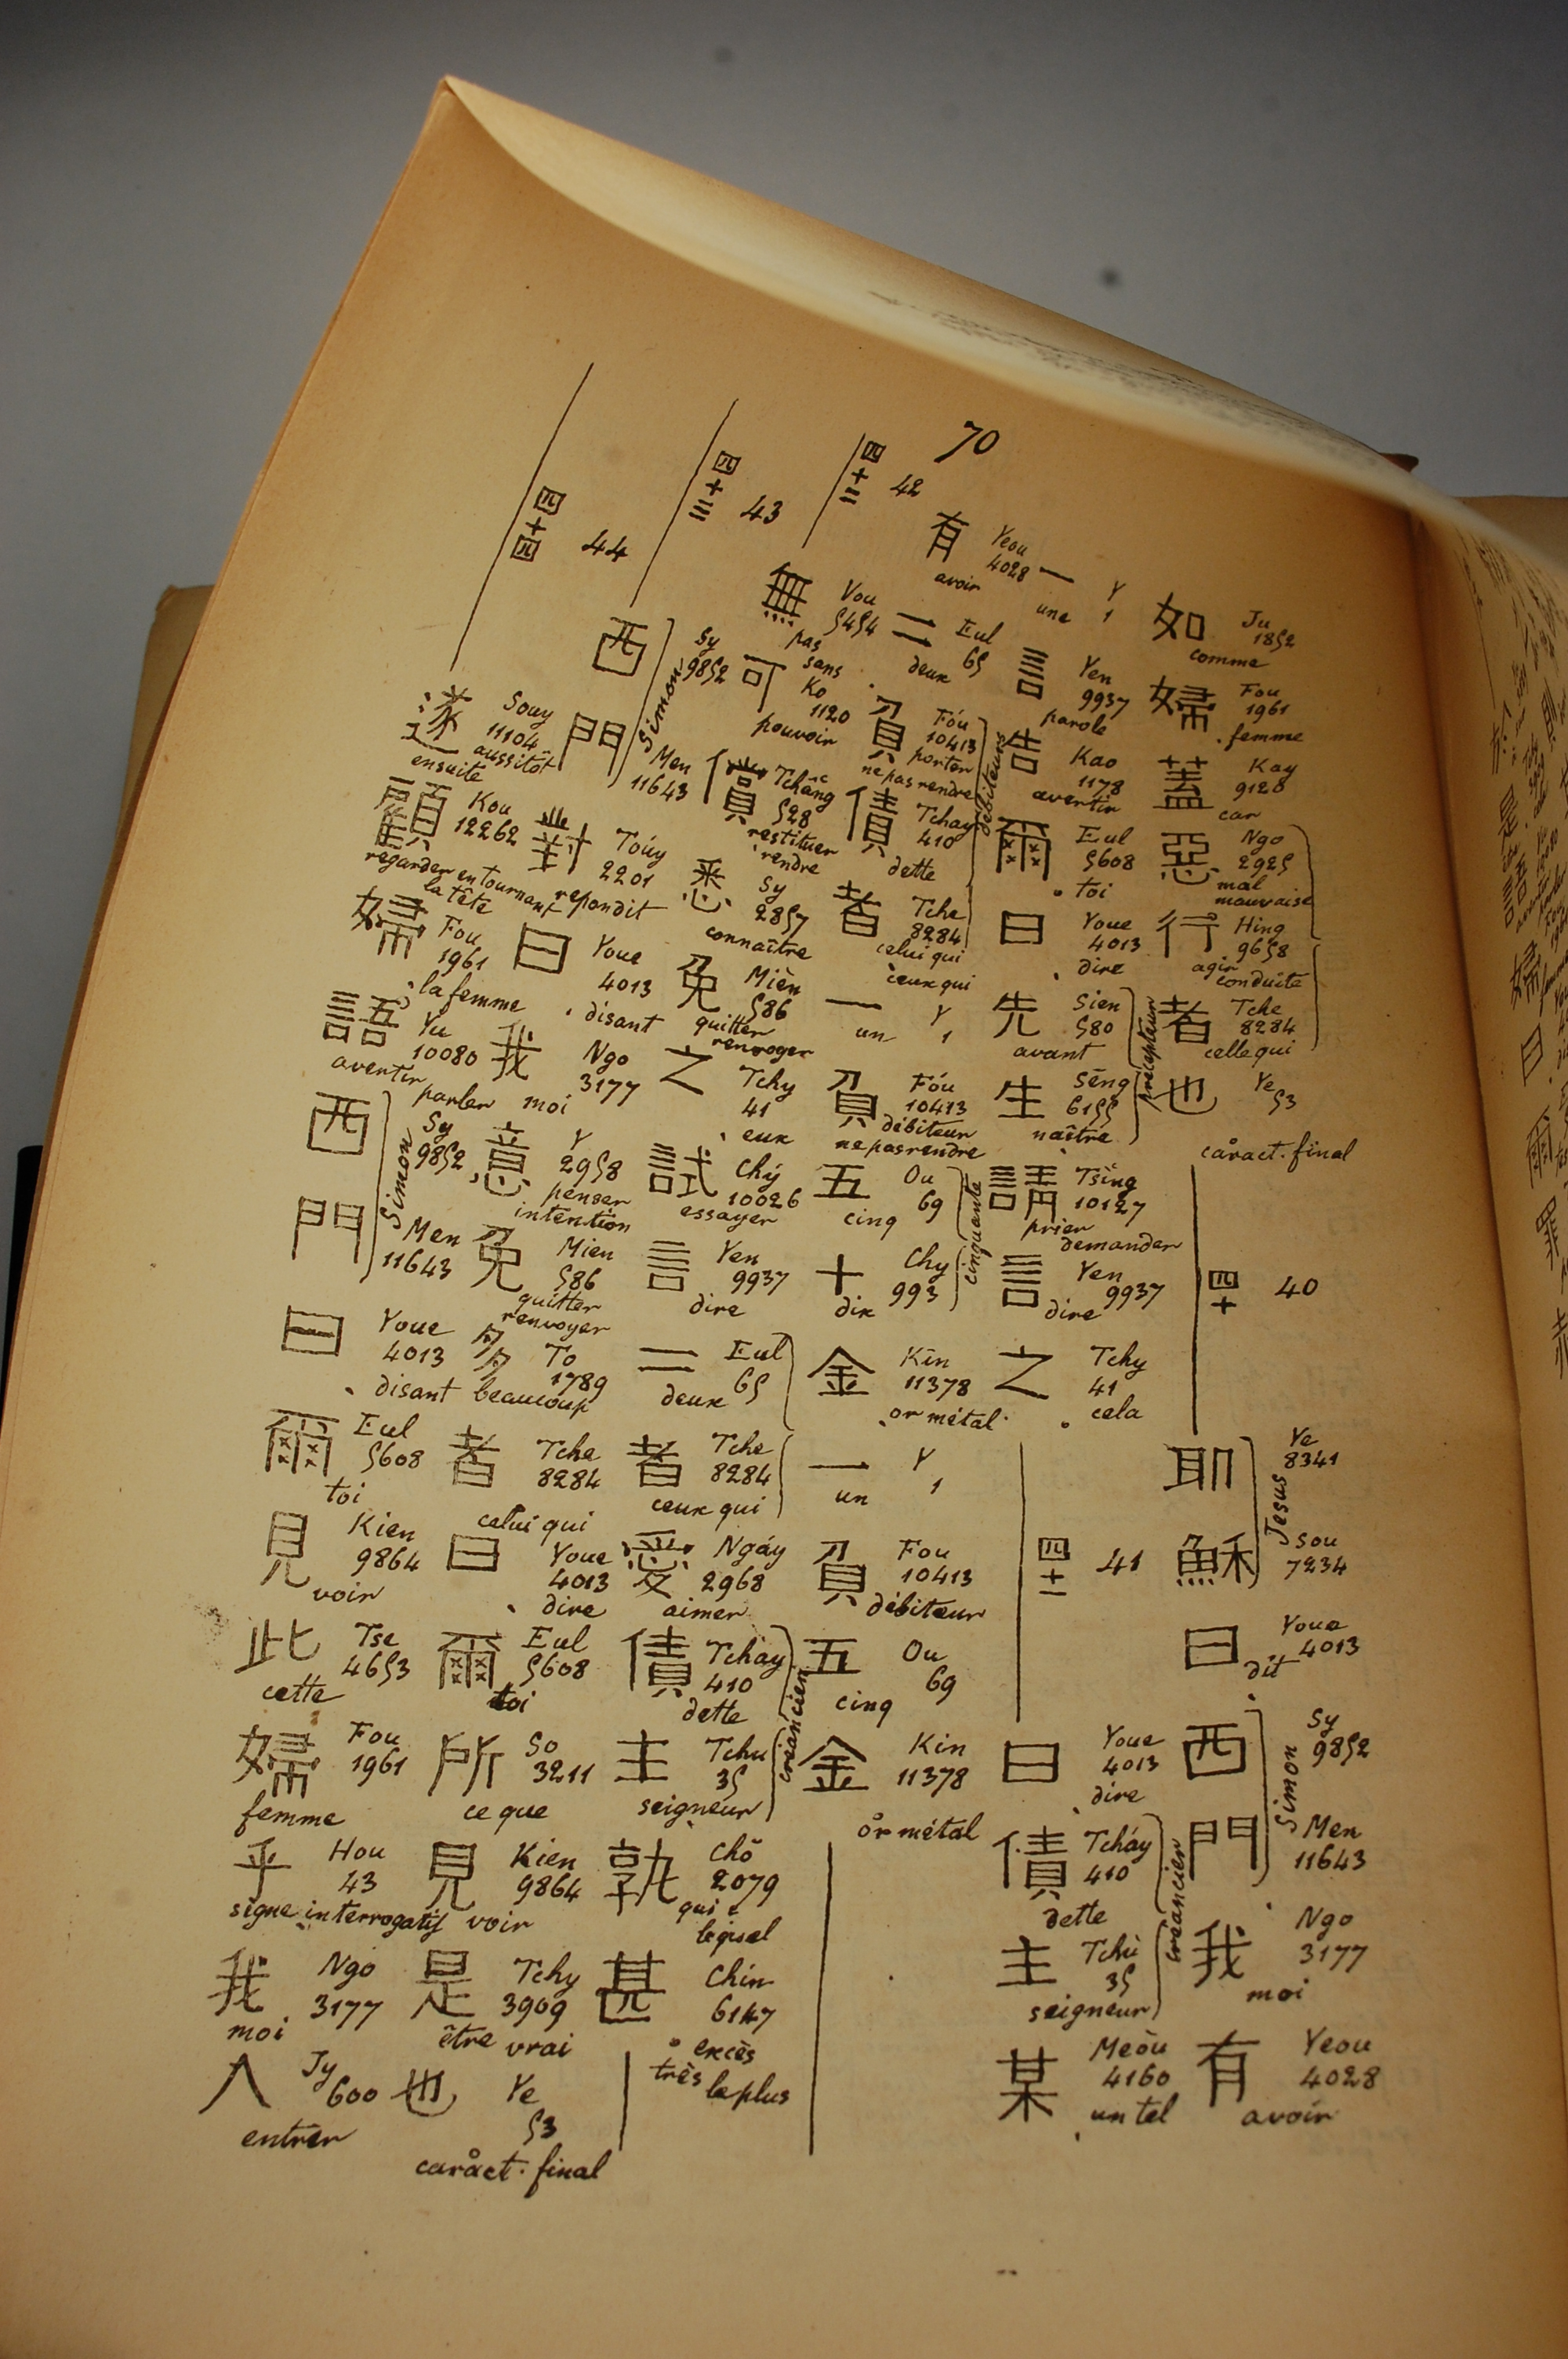 70
如 Ju 1852 comme
婦 Fou 1961 femme
蓋 Kay 9120 car
惡 Ngo 2925 mal mauvaise
行 Hing 9658 agir conduite
者 Tche 8284 celle qui
也 Ye 53 caract. final
四十 40
耶 Ye 8341
穌 Sou 7234
Jesus
曰 Youe 4013 dit
西 Sy 9852
門 Men 11643
Simon
我 Ngo 3177 moi
有 Yeou 4028 avoir
一 Y 1 une
言 Yen 9937 parole
告 Kao 1178 avertir
爾 Eul 5608 toi
曰 Youe 4013 dire
先 Sien 580 avant
生 Sēng 6155 naître
précepteur
請 Tsing 10127 prier demander
言 Yen 9937 dire
之 Tchy 41 cela
四十一 41
曰 Youe 4013 dire
債 Tcháy 410 dette
主 Tchù 35 seigneur
créancien
某 Meòu 4160 un tel
有 Yeou 4028 avoir
二 Eul 65 deux
負 Fóu 10413 porter ne pas rendre
債 Tchay 410 dette
者 Tche 8284 celui qui ceux qui
débiteurs
一 Y 1 un
負 Fóu 10413 débiteur ne pas rendre
五 Ou 69 cinq
十 Chy 993 dix
cinquante
金 Kīn 11378 or métal
一 Y 1 un
負 Fou 10413 débiteur
五 Ou 69 cinq
金 Kin 11378 or métal
四十二 42
無 Vou 5454 pas sans
可 Ko 1120 pouvoir
償 Tchāng 528 restituer rendre
悉 Sy 2857 connaître
免 Mièn 586 quitter renvoyer
之 Tchy 41 eux
試 Chý 10026 essayer
言 Yen 9937 dire
二 Eul 65 deux
者 Tche 8284 ceux qui
愛 Ngáy 2968 aimer
債 Tcháy 410 dette
主 Tchu 35 seigneur
créancien
孰 Chŏ 2079 qui lequel
甚 Chín 6147 excès très le plus
四十三 43
西 Sy 9852
門 Men 11643
Simon
對 Toúy 2201 repondit
曰 Youe 4013 disant
我 Ngo 3177 moi
意 Y 2958 penser intention
免 Mien 586 quitter renvoyer
多 To 1789 beaucoup
者 Tche 8284 celui qui
曰 Youe 4013 dire
爾 Eul 5608 toi
所 So 3211 ce que
見 Kien 9864 voir
是 Tchy 3909 être vrai
也 Ye 53 caract. final
四十四 44
遂 Souy 11104 aussitôt ensuite
顧 Kou 12262 regarder en tournant la tête
婦 Fou 1961 la femme
語 Yu 10080 avertir parler
西 Sy 9852
門 Men 11643
Simon
曰 Youe 4013 disant
爾 Eul 5608 toi
見 Kien 9864 voir
此 Tse 4653 cette
婦 Fou 1961 femme
乎 Hou 43 signe interrogatif
我 Ngo 3177 moi
入 Jy 600 entrer